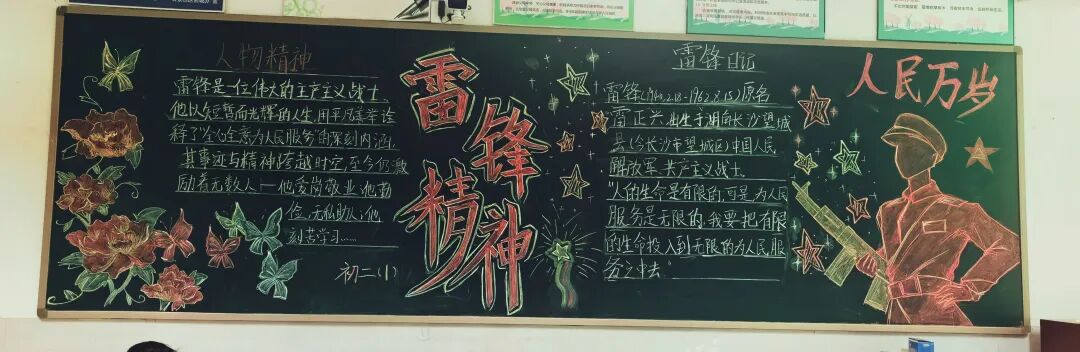 人物精神
雷锋是一位伟大的共产主义战士、
他以短暂而光辉的人生,用平凡善举诠
释了“全心全意为人民服务”的深刻内涵,
其事迹与精神跨越时空,至今仍激
励着无数人——他爱岗敬业,他勤
俭、无私助人;他
刻苦学习……
初二(1)
雷锋
精神
雷锋日记
雷锋(1940.12.18-1962.8.15)原名
雷正兴,出生于湖南长沙望城
县(今长沙市望城区)中国人民
解放军、共产主义战士、
“人的生命是有限的,可是,为人民
服务是无限的,我要把有限
的生命投入到无限的为人民服
务之中去”
人民万岁